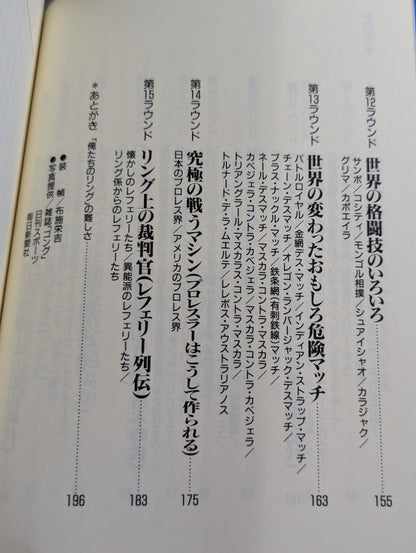 第12ラウンド
世界の格闘技のいろいろ……155
サンボ/コシティ/モンゴル相撲/シュアイシャオ/カラジャク/
グリマ/カポエイラ
第13ラウンド
世界の変わったおもしろ危険マッチ……163
バトルロイヤル/金網デス・マッチ/インディアン・ストラップ・マッチ/
チェーン・デスマッチ/オレゴン・ランバージャック・デスマッチ/
ブラス・ナックル・マッチ/鉄条網(有刺鉄線)マッチ/
ネール・デスマッチ/マスカラ・コントラ・マスカラ/
カベジェラ・コントラ・カベジェラ/マスカラ・コントラ・カベジェラ/
トリアングラール・マスカラス・コントラ・マスカラ/
トルナード・デ・ラ・ムエルテ/レレボス・アウストラリアノス
第14ラウンド
究極の戦うマシン(プロレスラーはこうして作られる)……175
日本のプロレス界/アメリカのプロレス界
第15ラウンド
リング上の裁判官(レフェリー列伝)……183
懐かしのレフェリーたち/異能派のレフェリーたち/
リング係からのレフェリーたち/
*あとがき 「俺たちのリング」の難しさ……196
●装 幀/布施栄吉
●写真提供/雑誌「ゴング」
日刊スポーツ
毎日新聞社